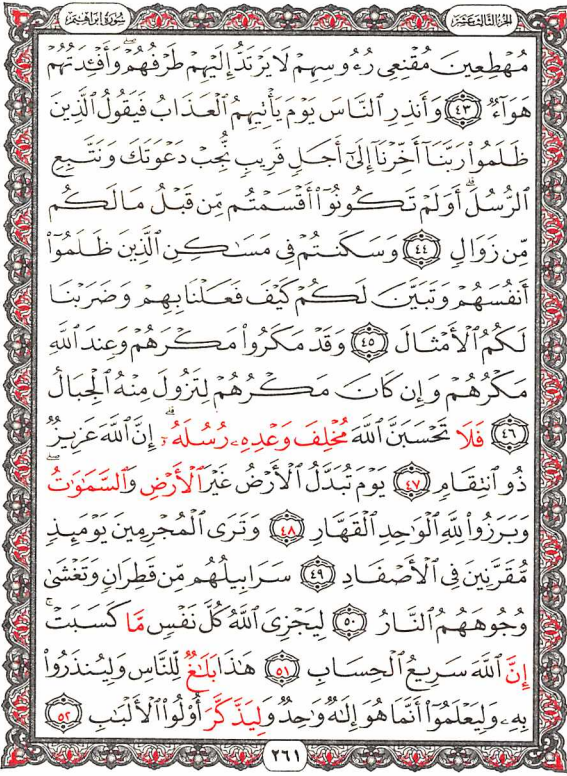 الجزء الثالث عشر
سورة إبراهيم
مُهْطِعِينَ مُقْنِعِى رُءُوسِهِمْ لَا يَرْتَدُّ إِلَيْهِمْ طَرْفُهُمْ ۖ وَأَفْـِٔدَتُهُمْ
هَوَآءٌ ٤٣ وَأَنذِرِ ٱلنَّاسَ يَوْمَ يَأْتِيهِمُ ٱلْعَذَابُ فَيَقُولُ ٱلَّذِينَ
ظَلَمُوا۟ رَبَّنَآ أَخِّرْنَآ إِلَىٰٓ أَجَلٍ قَرِيبٍ نُّجِبْ دَعْوَتَكَ وَنَتَّبِعِ
ٱلرُّسُلَ ۗ أَوَلَمْ تَكُونُوٓا۟ أَقْسَمْتُم مِّن قَبْلُ مَا لَكُم
مِّن زَوَالٍ ٤٤ وَسَكَنتُمْ فِى مَسَٰكِنِ ٱلَّذِينَ ظَلَمُوٓا۟
أَنفُسَهُمْ وَتَبَيَّنَ لَكُمْ كَيْفَ فَعَلْنَا بِهِمْ وَضَرَبْنَا
لَكُمُ ٱلْأَمْثَالَ ٤٥ وَقَدْ مَكَرُوا۟ مَكْرَهُمْ وَعِندَ ٱللَّهِ
مَكْرُهُمْ وَإِن كَانَ مَكْرُهُمْ لِتَزُولَ مِنْهُ ٱلْجِبَالُ
٤٦ فَلَا تَحْسَبَنَّ ٱللَّهَ مُخْلِفَ وَعْدِهِۦ رُسُلَهُۥٓ ۗ إِنَّ ٱللَّهَ عَزِيزٌ
ذُو ٱنتِقَامٍ ٤٧ يَوْمَ تُبَدَّلُ ٱلْأَرْضُ غَيْرَ ٱلْأَرْضِ وَٱلسَّمَٰوَٰتُ ۖ
وَبَرَزُوا۟ لِلَّهِ ٱلْوَٰحِدِ ٱلْقَهَّارِ ٤٨ وَتَرَى ٱلْمُجْرِمِينَ يَوْمَئِذٍ
مُّقَرَّنِينَ فِى ٱلْأَصْفَادِ ٤٩ سَرَابِيلُهُم مِّن قَطِرَانٍ وَتَغْشَىٰ
وُجُوهَهُمُ ٱلنَّارُ ٥٠ لِيَجْزِىَ ٱللَّهُ كُلَّ نَفْسٍ مَّا كَسَبَتْ ۚ
إِنَّ ٱللَّهَ سَرِيعُ ٱلْحِسَابِ ٥١ هَٰذَا بَلَٰغٌ لِّلنَّاسِ وَلِيُنذَرُوا۟
بِهِۦ وَلِيَعْلَمُوٓا۟ أَنَّمَا هُوَ إِلَٰهٌ وَٰحِدٌ وَلِيَذَّكَّرَ أُو۟لُوا۟ ٱلْأَلْبَٰبِ ٥٢
٢٦١